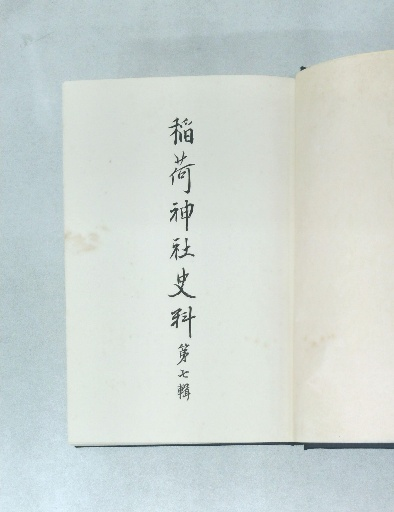 稲荷神社史料第七輯